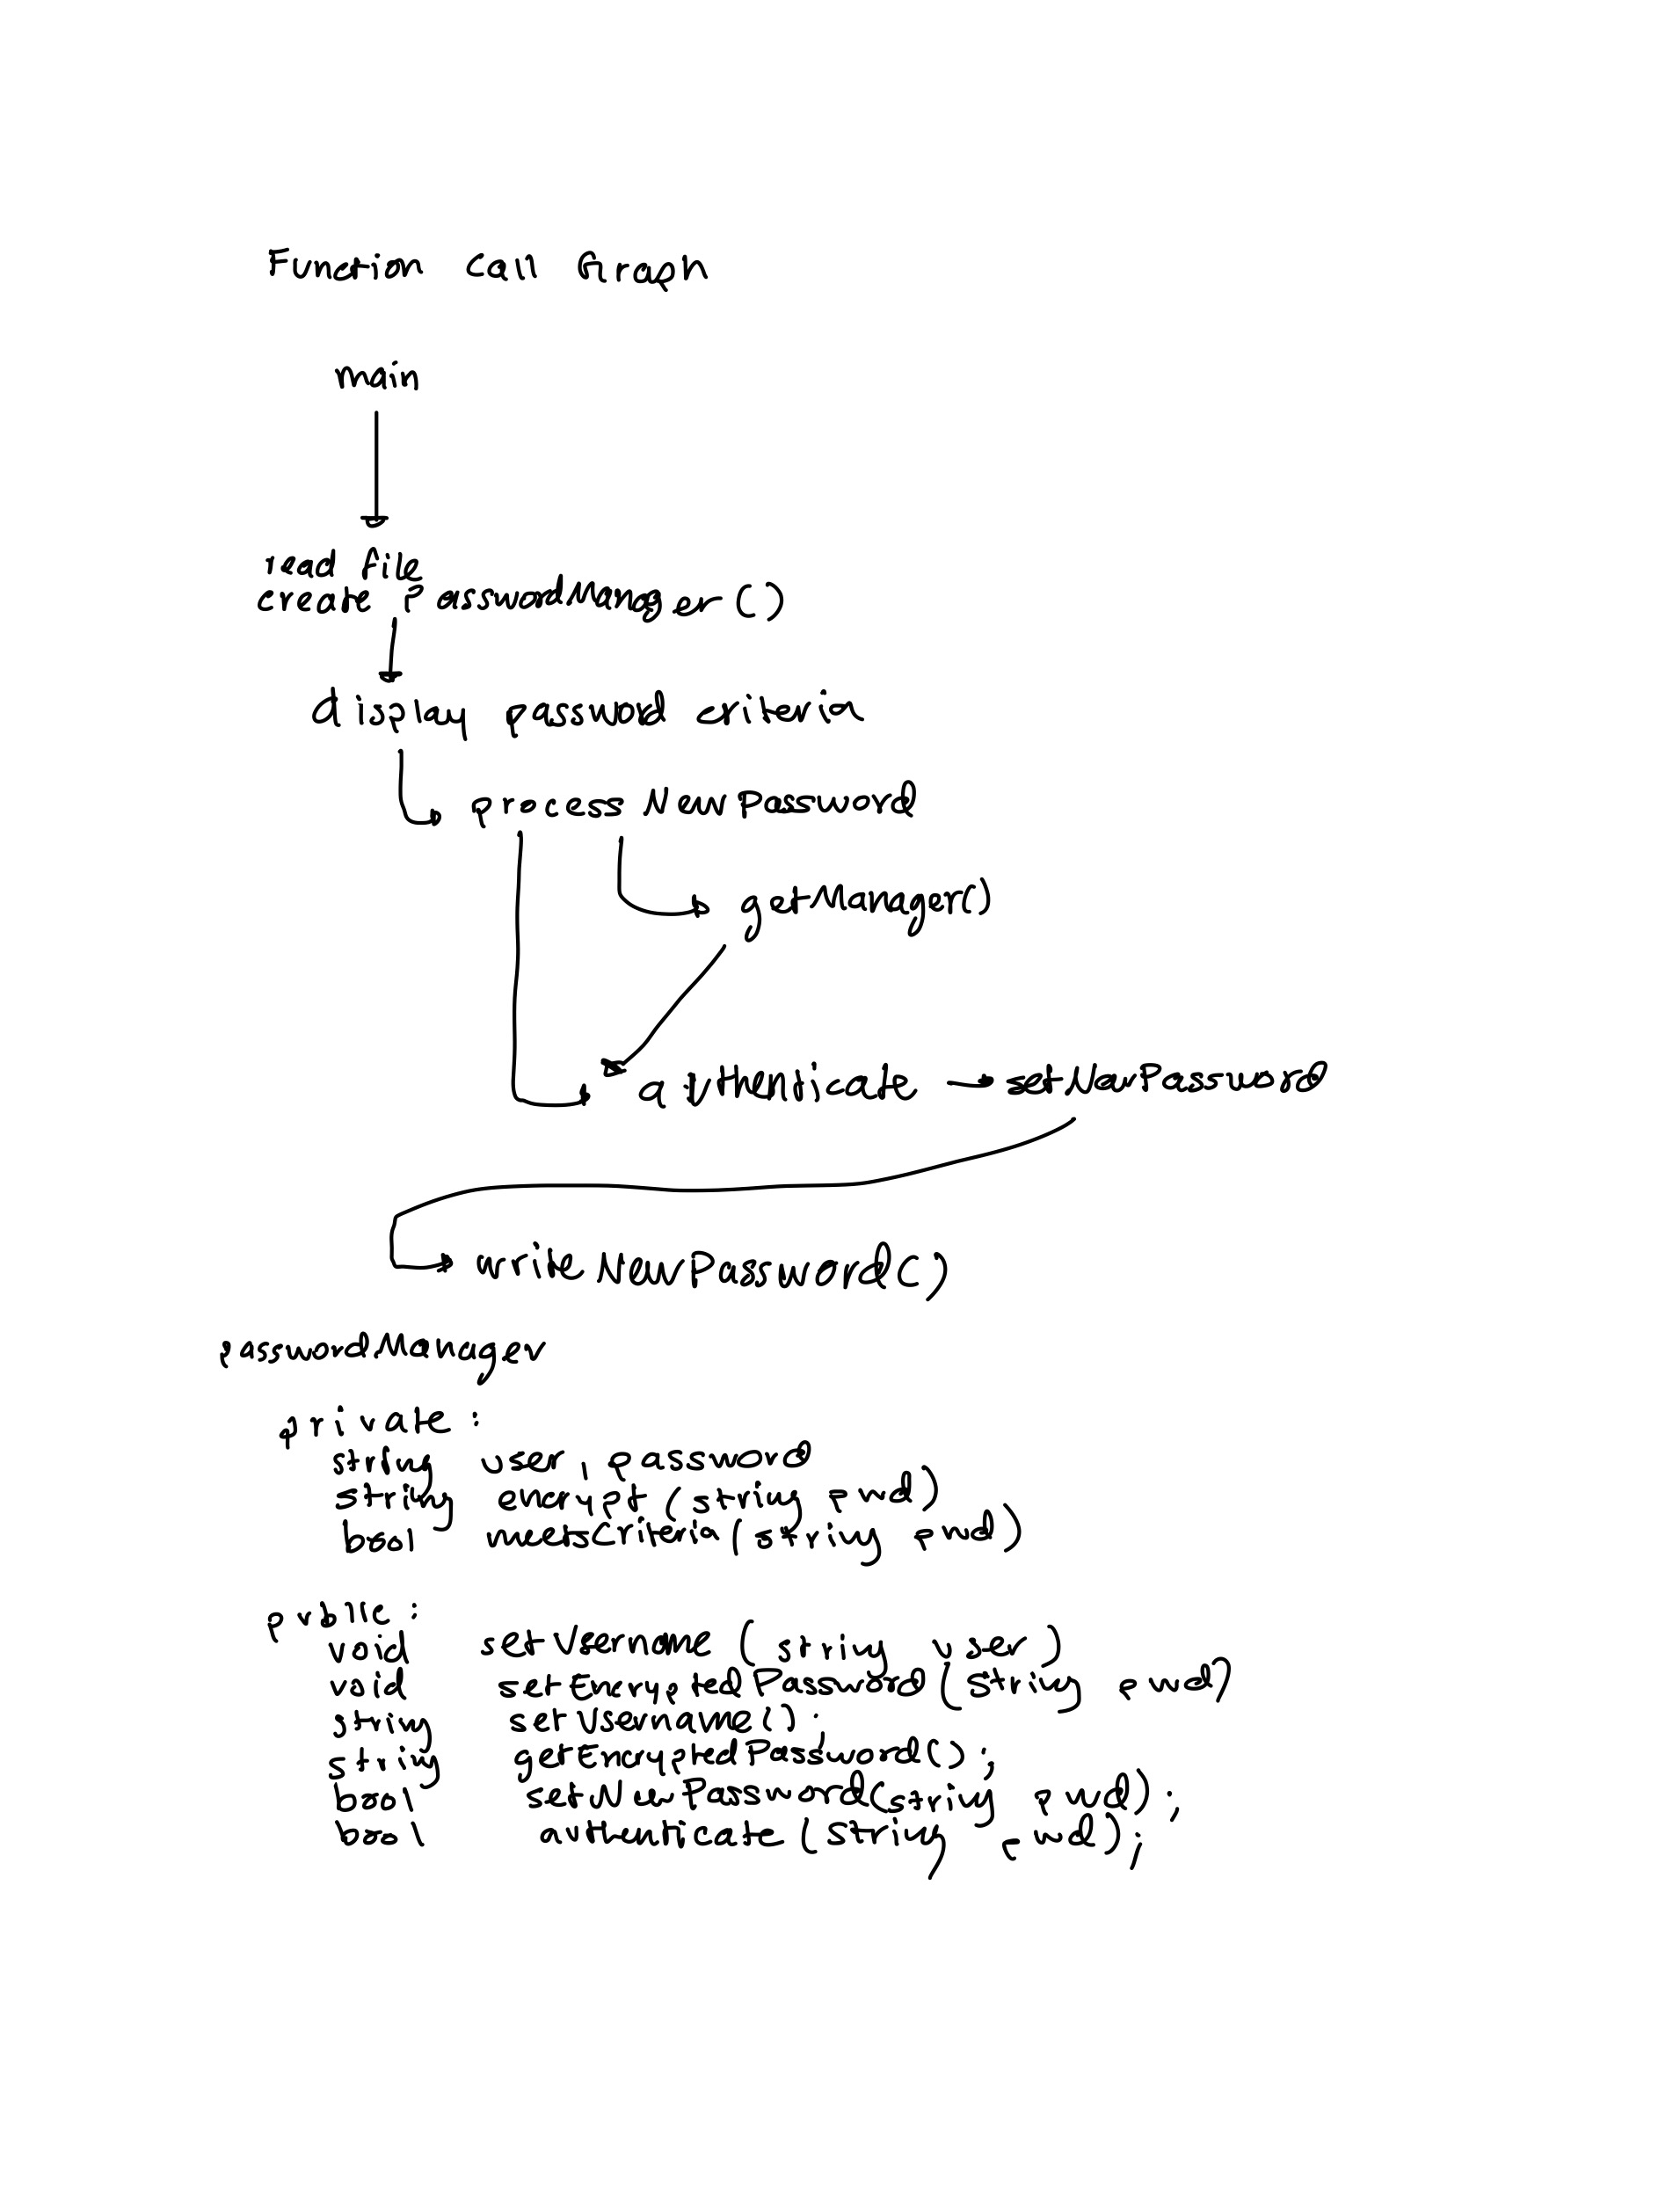 Function Call Graph
main
read file
create PasswordManager()
display password criteria
process NewPassword
getManager()
authenticate → setNewPassword
writeNewPassword()
passwordManager
private:
string user, password
string encrypt (string pwd)
bool meetsCriteria(string pwd)
public:
void setUsername (string user)
void setEncryptedPassword(string pwd)
string setUsername();
string getEncryptedPassword();
bool setNewPassword(string pwd);
bool authenticate (string pwd);